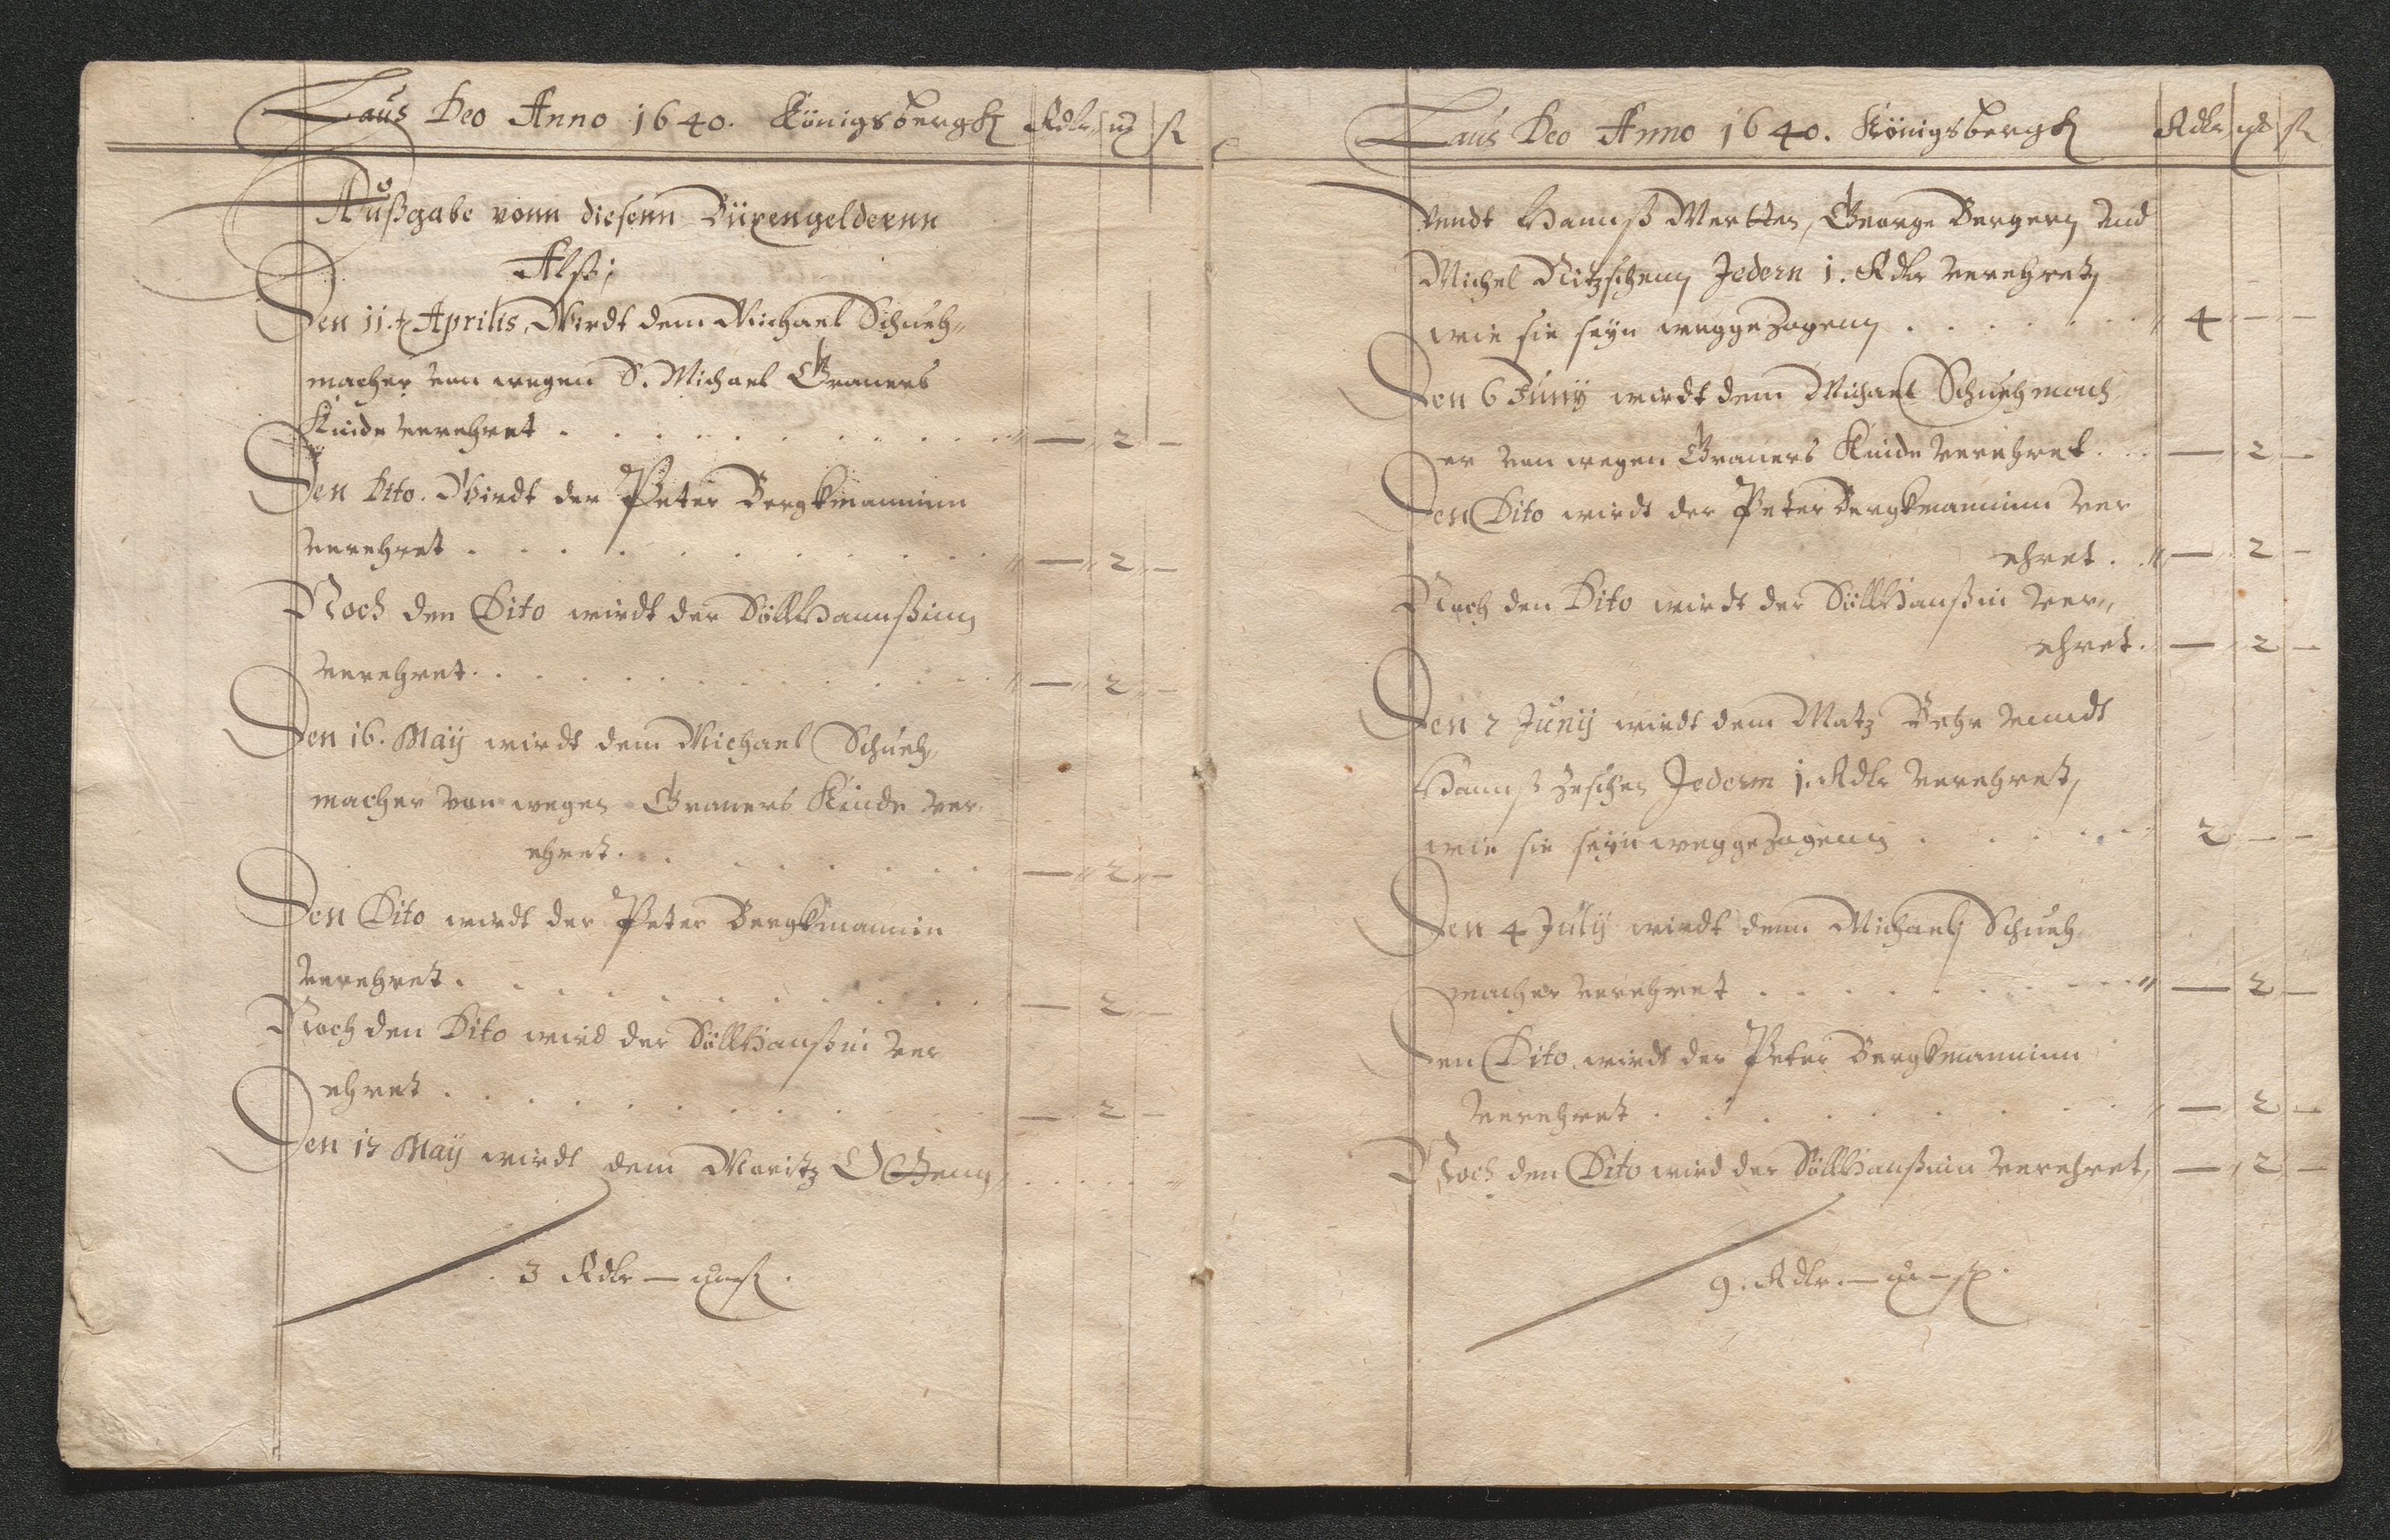 Laus Deo Anno 1640. Königsbergk Rdlr
Außgabe vonn diesenn Büxengeldernn
Alß;
Den 11. Aprilis, Wirdt dem Michael Schueh„
macher von wegen S. Michael Graners
Kinde verehret . . . . . . . . . — 2 —
Den Dito. Wirdt der Peter Bergkmannin
verehret . . . . . . . . . — 2 —
Noch den Dito wirdt der Söllhannßinn
verehret . . . . . . . . . — 2 —
Den 16. Maÿ wirdt dem Michael Schueh„
macher von wegen Graners Kinde ver
ehret . . . . . . . — 2 —
Den Dito wirdt der Peter Bergkmannin
verehret . . . . . . . . . — 2 —
Noch den Dito wird der Söllhanßin ver
ehret . . . . . . . . . — 2 —
Den 17 Maÿ wirdt dem Moritz
3 Rdlr —
Laus Deo Anno 1640. Königsbergk Rdlr
vnndt Hannß Mertten, George Bergern vnd
Michel Nitzschenn Jedern 1. Rdlr verehret,
wie sie seyn weggezogenn . . . . . . 4 — —
Den 6 Junÿ wirdt dem Michael Schuehmach
er von wegen Graners Kinde verehret . . — 2 —
Den Dito wirdt der Peter Bergkmannin ver
ehret . . — 2 —
Noch den Dito wirdt der Söllhanßin ver„
ehret. — 2 —
Den 7 Junÿ wirdt dem Matz Behr vnndt
Hannß Jederm 1. Rdlr verehret,
wie sie seyn weggezogenn . . . . . 2 — —
Den 4 Julÿ wirdt dem Michael Schueh
macher verehret . . . . . . . . — 2 —
Den Dito wirdt der Peter Bergkmannin
verehret . . . . . . . . — 2 —
Noch den Dito wird der Söllhanßin verehret, — 2 —
9. Rdlr. —